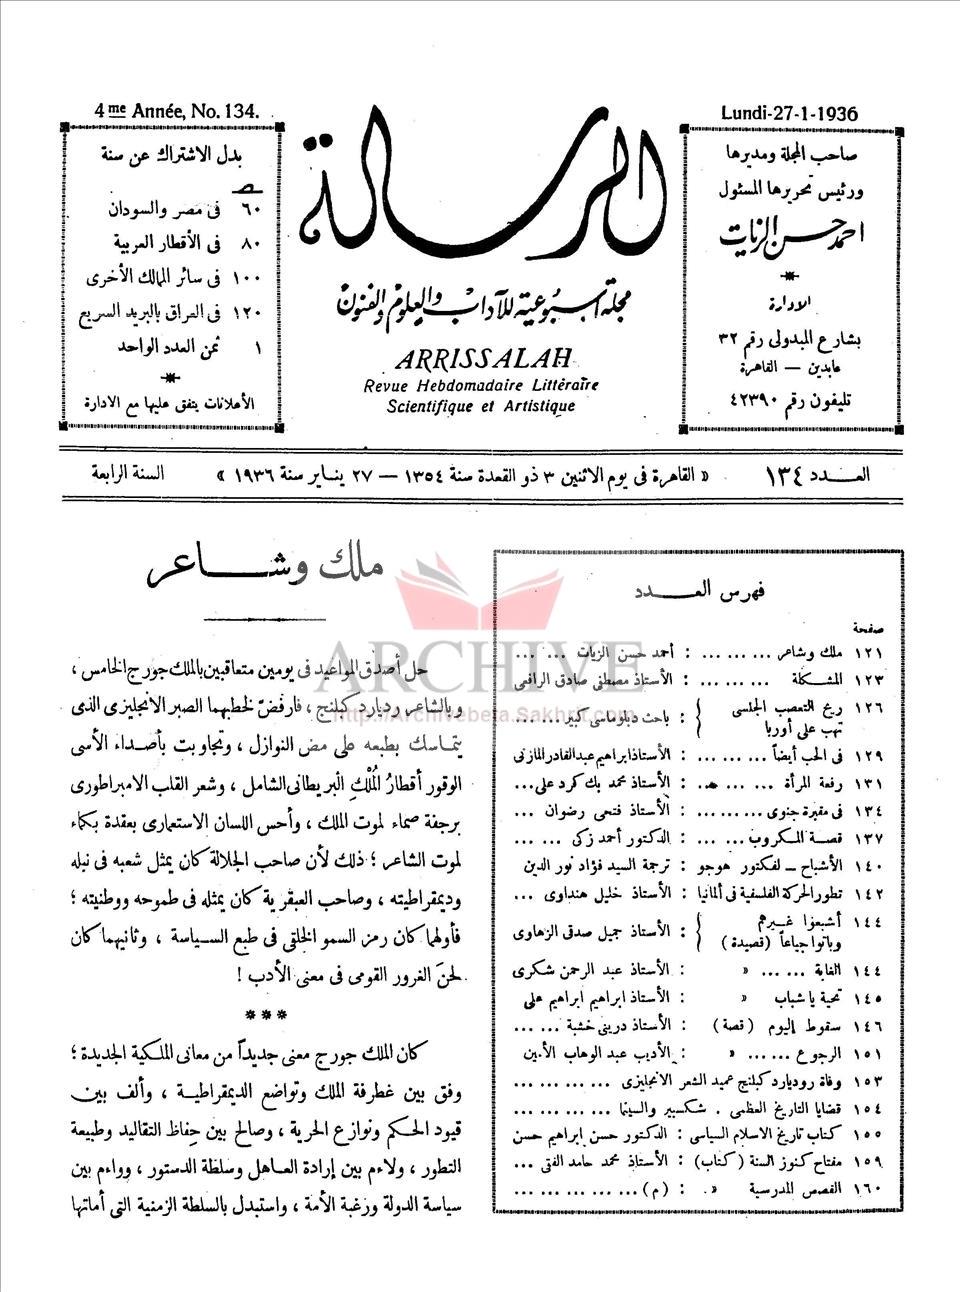 4me Année, No. 134.
Lundi-27-1-1936
صاحب المجلة ومديرها
ورئيس تحريرها المسئول
احمد حسن الزيات
الادارة
بشارع المبدولى رقم ٣٢
عابدين — القاهرة
تليفون رقم ٤٢٣٩٠
الرسالة
مجلة أسبوعية للآداب والعلوم والفنون
ARRISSALAH
Revue Hebdomadaire Littéraire
Scientifique et Artistique
بدل الاشتراك عن سنة
ص
٦٠ فى مصر والسودان
٨٠ فى الأقطار العربية
١٠٠ فى سائر الممالك الأخرى
١٢٠ فى العراق بالبريد السريع
١ ثمن العدد الواحد
الأعلانات يتفق عليها مع الادارة
العـــدد ١٣٤ « القاهرة فى يوم الاثنين ٣ ذو القعدة سنة ١٣٥٤ — ٢٧ يناير سنة ١٩٣٦ » السنة الرابعة
فهرس العـــدد
صفحة
١٢١ ملك وشاعر ... ... ... : أحمد حسن الزيات ... ...
١٢٣ المشكلة ... ... ... : الأستاذ مصطفى صادق الرافعى
١٢٦ ريح التعصب الجنسى تهب على أوربا } : باحث دبلوماسى كبير ... ...
١٢٩ فى الحب أيضاً ... ... ... : الأستاذ ابراهيم عبد القادر المازنى
١٣١ رفعة المرأة ... ... ... : الأستاذ محمد بك كرد على ...
١٣٤ فى مقبرة جنوى ... ... ... : الأستاذ فتحى رضوان ...
١٣٧ قصة المكروب ... ... : الدكتور أحمد زكى ... ...
١٤٠ الأشباح — لفكتور هوجو : ترجمة السيد فؤاد نور الدين
١٤٢ تطور الحركة الفلسفية فى ألمانيا : الأستاذ خليل هنداوى ...
١٤٤ أشبعوا غيرهم وباتوا جياعاً (قصيدة) } : الأستاذ جميل صدقى الزهاوى
١٤٤ الغابة ... ... » : الأستاذ عبد الرحمن شكرى
١٤٥ تحية يا شباب » : الأستاذ ابراهيم ابراهيم على
١٤٦ سقوط إليوم (قصة) : الأستاذ درينى خشبة ... ...
١٥١ الرجوع ... ... » : الأديب عبد الوهاب الأمين
١٥٣ وفاة روديارد كبلنج عميد الشعر الانجليزى ... ... ... ...
١٥٤ قضايا التاريخ العظمى . شكسبير والسينما ... ... ... ...
١٥٥ كتاب تاريخ الاسلام السياسى : الدكتور حسن ابراهيم حسن
١٥٩ مفتاح كنوز السنة (كتاب) : الأستاذ محمد حامد الفقى ...
١٦٠ القصص المدرسية » : (م) ... ... ... ...
ملك وشـــاعر
حل أصدق المواعيد فى يومين متعاقبين بالملك جورج الخامس ،
وبالشاعر رديارد كبلنج ، فارفضّ لخطبهما الصبر الانجليزى الذى
يتماسك بطبعه على مض النوازل ، وتجاوبت بأصداء الأسى
الوقور أقطارُ المُلك البريطانى الشامل ، وشعر القلب الامبراطورى
برجفة صماء لموت الملك ، وأحس اللسان الاستعمارى بعقدة بكماء
لموت الشاعر ؛ ذلك لأن صاحب الجلالة كان يمثل شعبه فى نبله
وديمقراطيته ، وصاحب العبقرية كان يمثله فى طموحه ووطنيته ؛
فأولهما كان رمز السمو الخلقى فى طبع السياسة ، وثانيهما كان
لحنَ الغرور القومى فى معنى الأدب !
***
كان الملك جورج معنى جديداً من معانى الملكية الجديدة ؛
وفق بين غطرفة الملك وتواضع الديمقراطية ، وألف بين
قيود الحكم ونوازع الحرية ، وصالح بين حِفاظ التقاليد وطبيعة
التطور ، ولاءم بين إرادة العاهل وسلطة الدستور ، وواءم بين
سياسة الدولة ورغبة الأمة ، واستبدل بالسلطة الزمنية التى أماتها
ARCHIVE
http://Archivebeta.Sakhrit.com